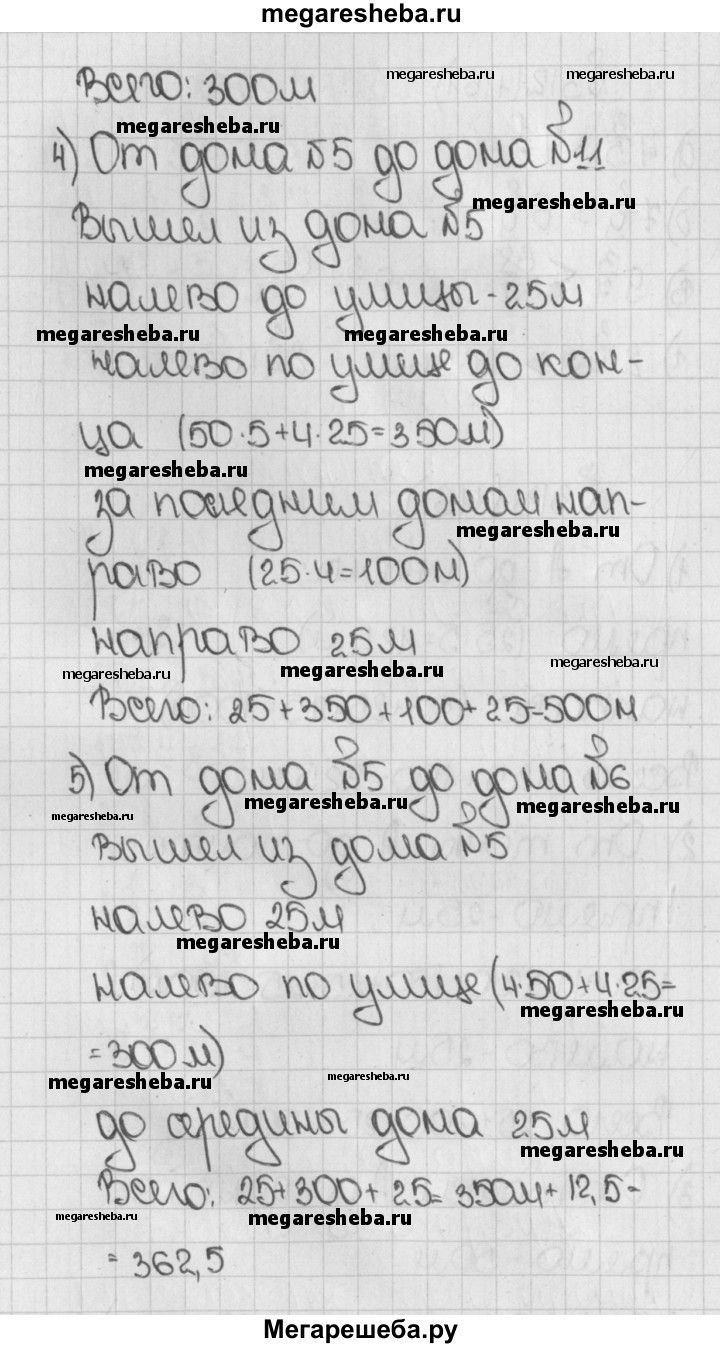 megaresheba.ru
Всего: 300м
megaresheba.ru megaresheba.ru
megaresheba.ru
4) От дома №5 до дома №11
megaresheba.ru
Вышел из дома №5
налево до улицы - 25м
megaresheba.ru megaresheba.ru
налево по улице до кон-
ца (50·5+4·25=350м)
megaresheba.ru
за последним домом нап-
megaresheba.ru
раво (25·4=100м)
направо 25м
megaresheba.ru megaresheba.ru megaresheba.ru
Всего: 25+350+100+25=500м
5) От дома №5 до дома №6
megaresheba.ru megaresheba.ru
megaresheba.ru
вышел из дома №5
налево 25м
megaresheba.ru
налево по улице (4·50+4·25=
megaresheba.ru
=300м)
megaresheba.ru megaresheba.ru
до середины дома 25м
megaresheba.ru
Всего: 25+300+25=350м+12,5=
megaresheba.ru megaresheba.ru
=362,5
Мегарешеба.ру